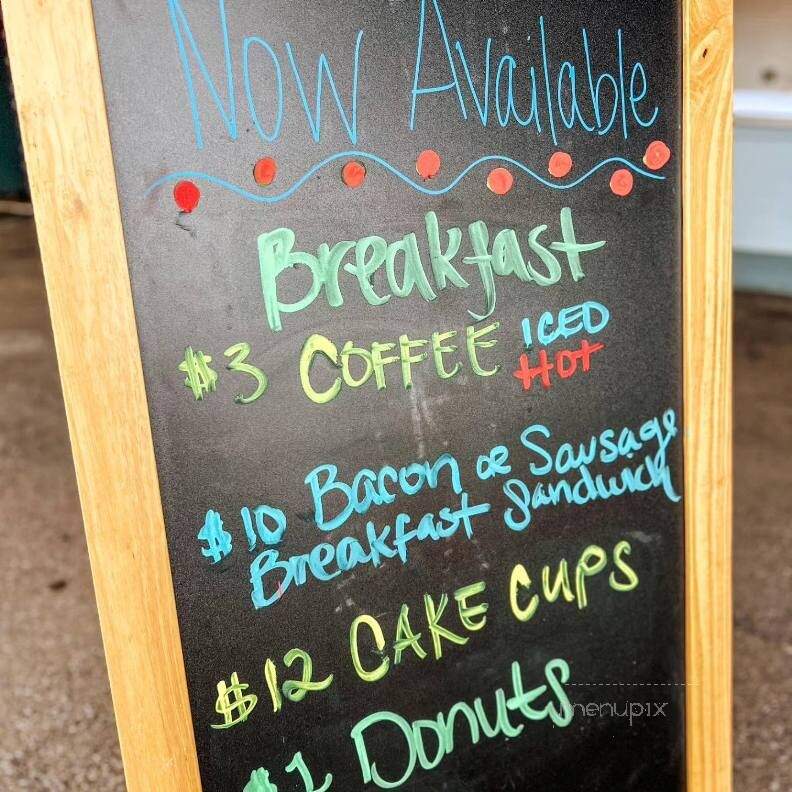 Now Available
Breakfast
$3 COFFEE ICED
HOT
$10 Bacon or Sausage
Breakfast Sandwich
$12 CAKE CUPS
$1 Donuts
menupix